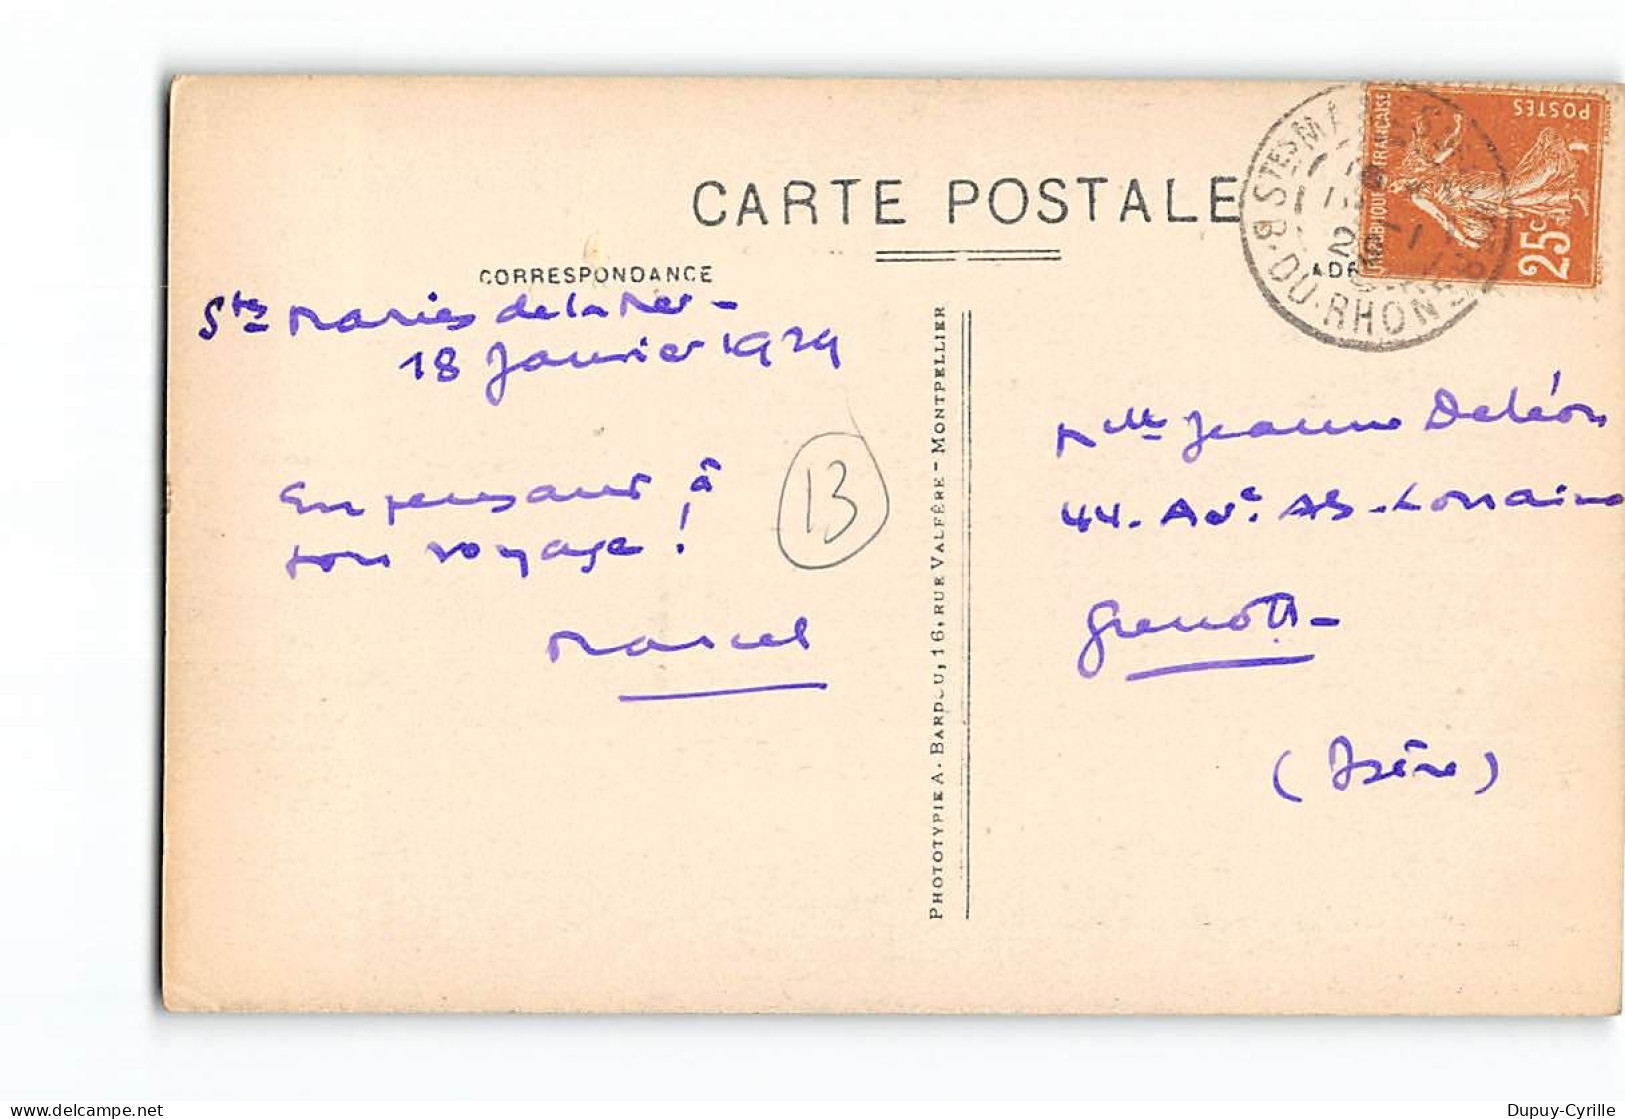 CARTE POSTALE
CORRESPONDANCE
Stes Maries de la Mer -
18 Janvier 1929
En pensant à
ton voyage !
Marcel
13
PHOTOTYPIE A. BARDOU, 16, RUE VALFÈRE - MONTPELLIER
POSTES
RÉPUBLIQUE FRANÇAISE
25c
STES MARIES
B. DU RHONE
Mlle Jeanne Deléon
44 - Ave. Als-Lorraine
Grenoble -
(Isère)
Dupuy-Cyrille